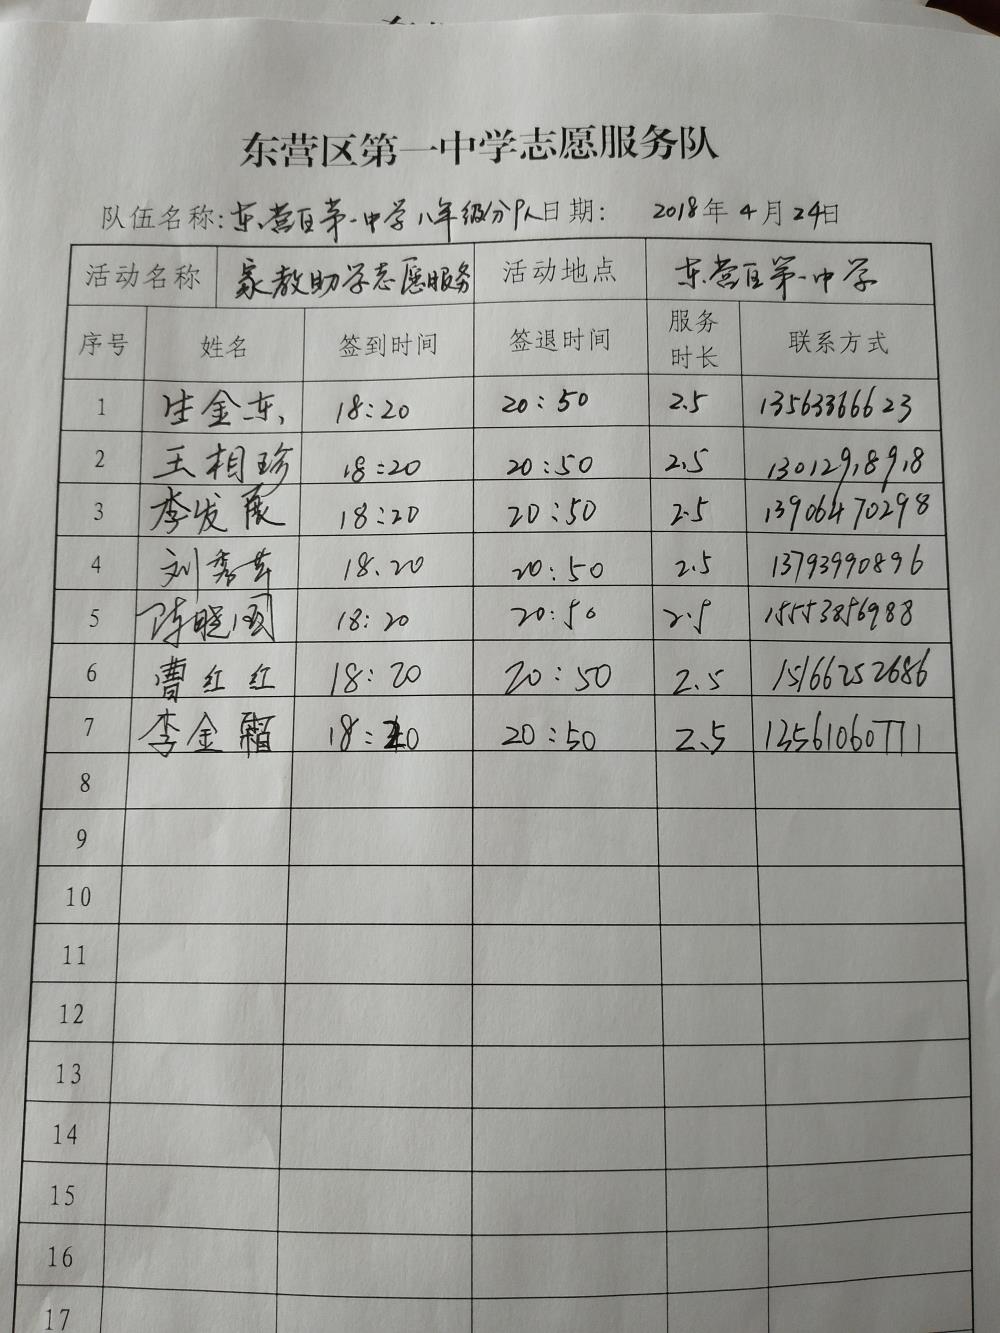 东营区第一中学志愿服务队
队伍名称:东营区第一中学八年级分队 日期: 2018年4月24日
活动名称 家教助学志愿服务 活动地点 东营区第一中学
序号 姓名 签到时间 签退时间 服务时长 联系方式
1 生金东 18:20 20:50 2.5 13563366623
2 王相珍 18:20 20:50 2.5 13012918918
3 李发展 18:20 20:50 2.5 13906470298
4 刘秀 18.20 20:50 2.5 13793990896
5 陈晓 18:20 20:50 2.5 15553856988
6 曹红红 18:20 20:50 2.5 15166252686
7 李金霜 18:20 20:50 2.5 13561060771
8
9
10
11
12
13
14
15
16
17